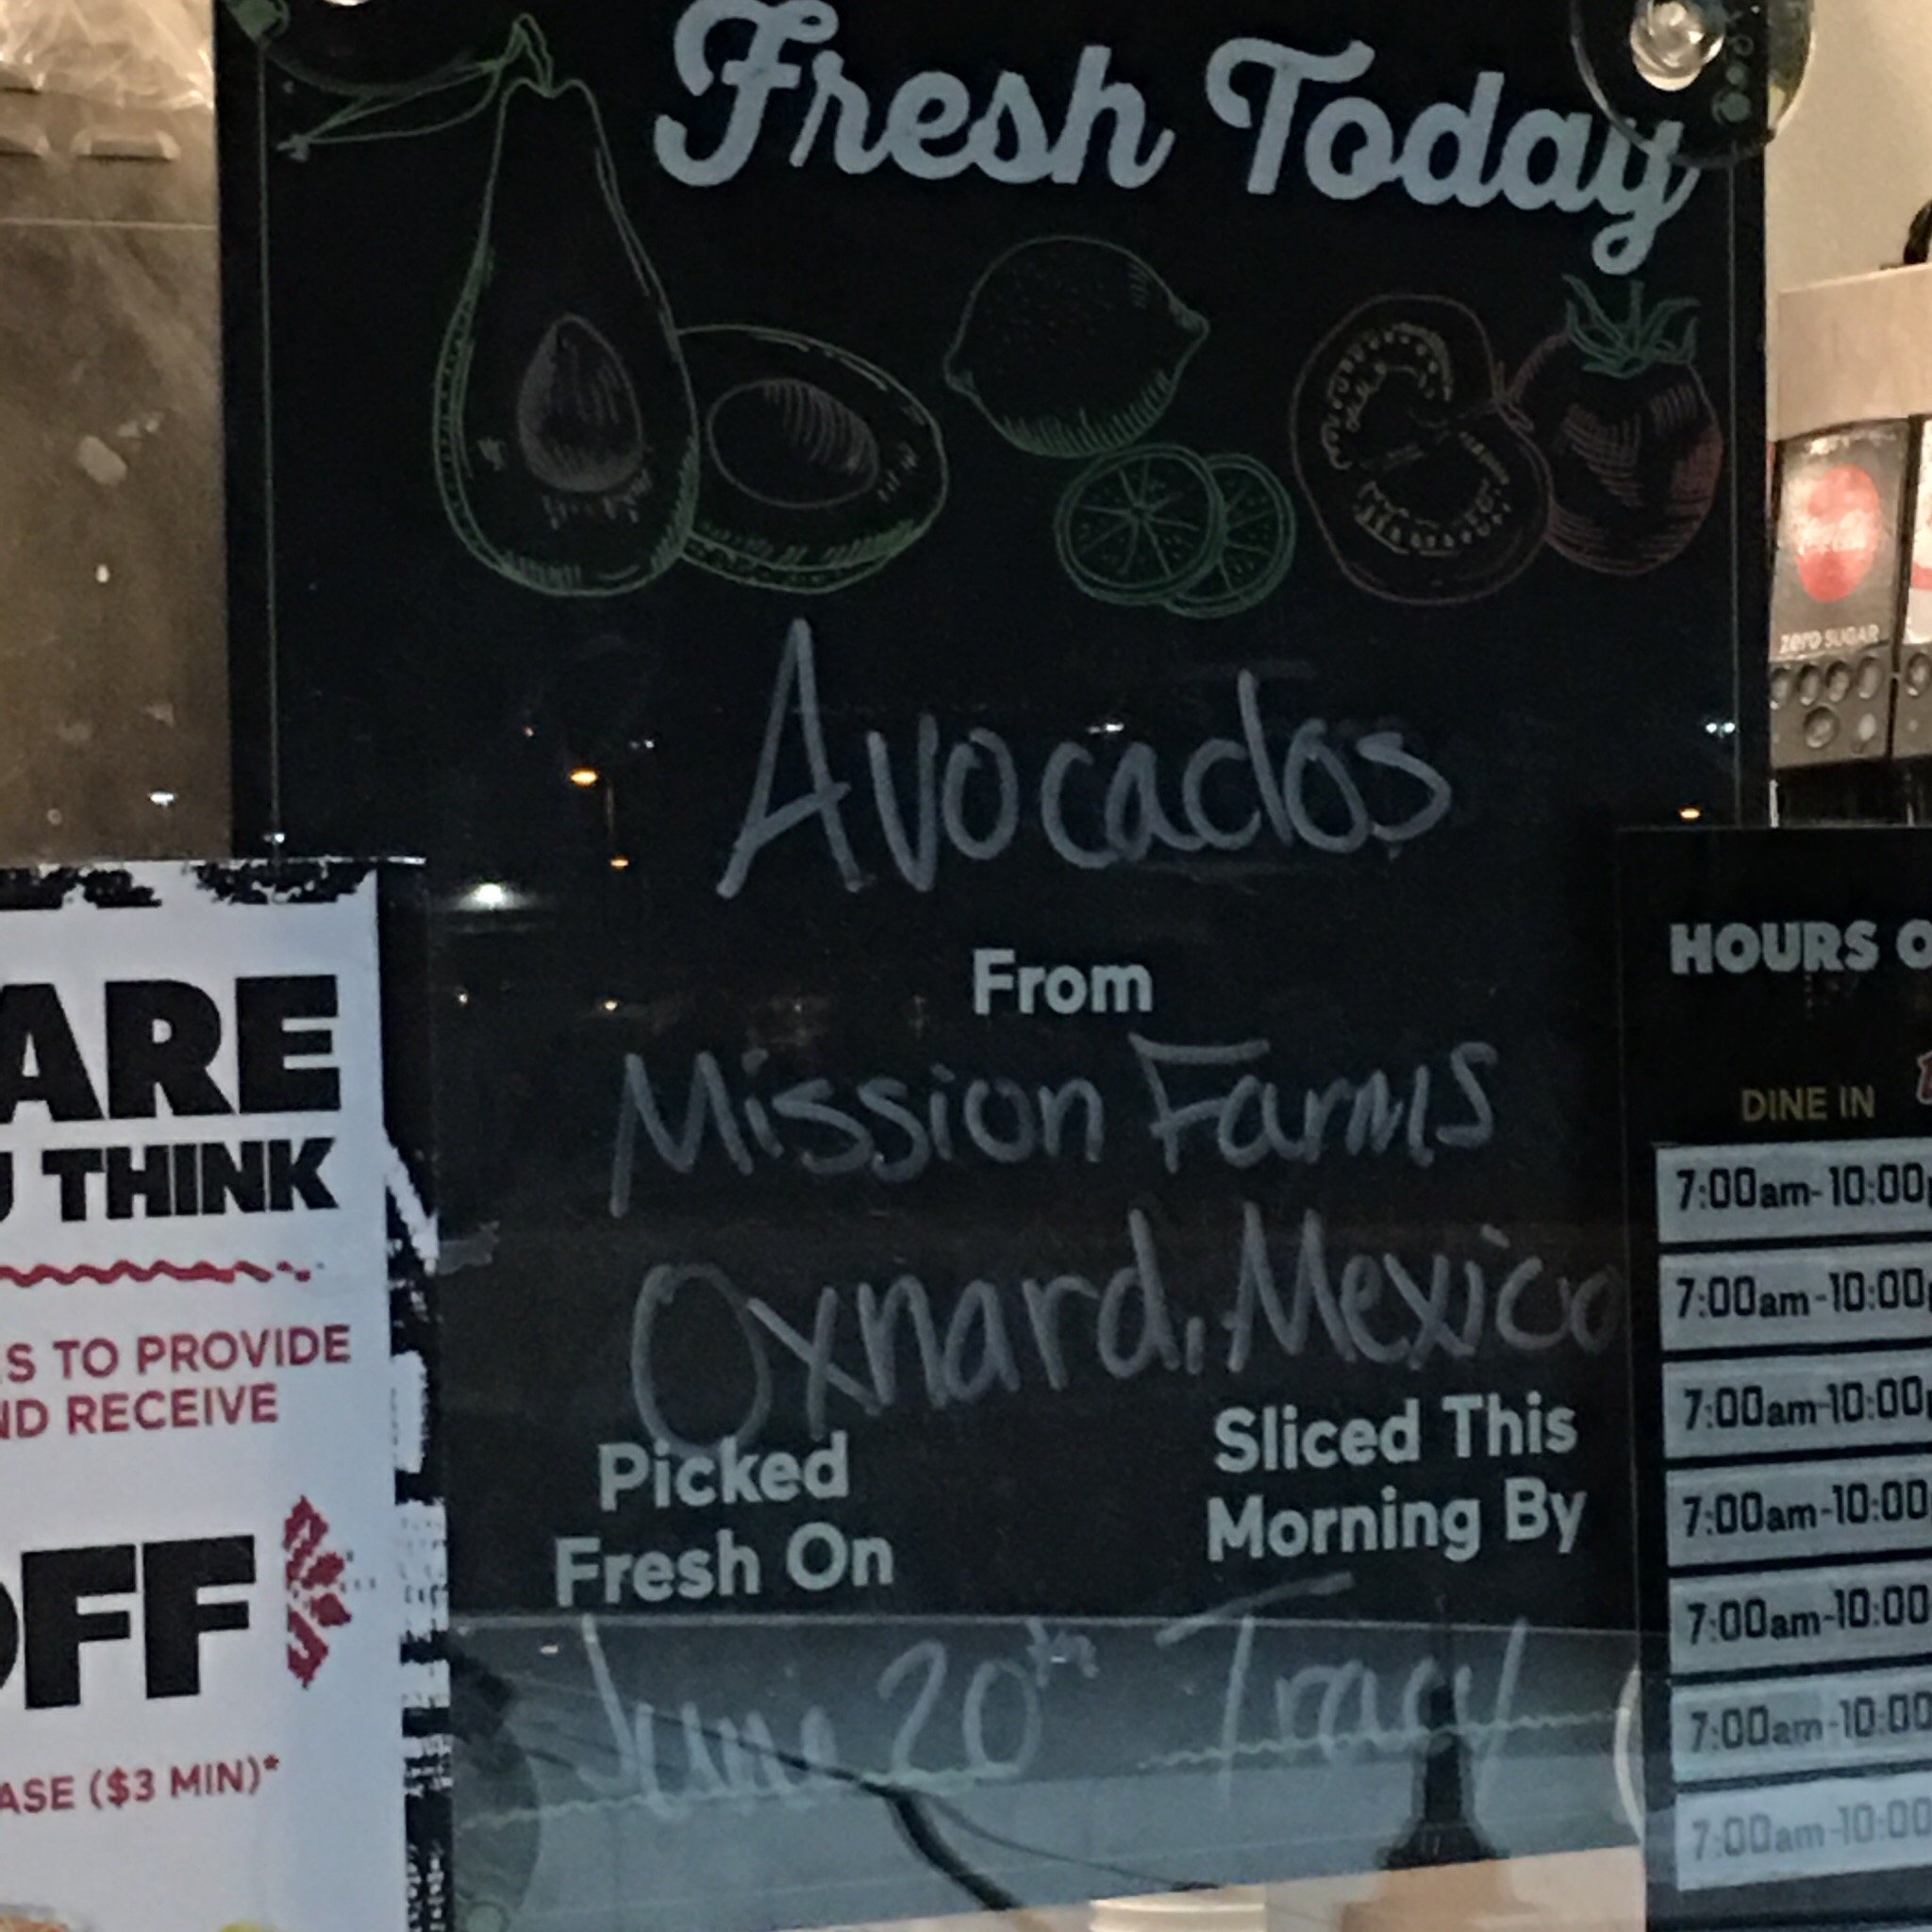 Fresh Today
Avocados
From
Mission Farms
Oxnard, Mexico
Picked
Fresh On
Sliced This
Morning By
June 20th
Tracy
ARE
THINK
TO PROVIDE
RECEIVE
OFF
($3 MIN)*
HOURS
DINE IN
7:00am-10:00
7:00am-10:00
7:00am-10:00
7:00am-10:00
7:00am-10:00
7:00am-10:00
7:00am-10:00
zero SUGAR